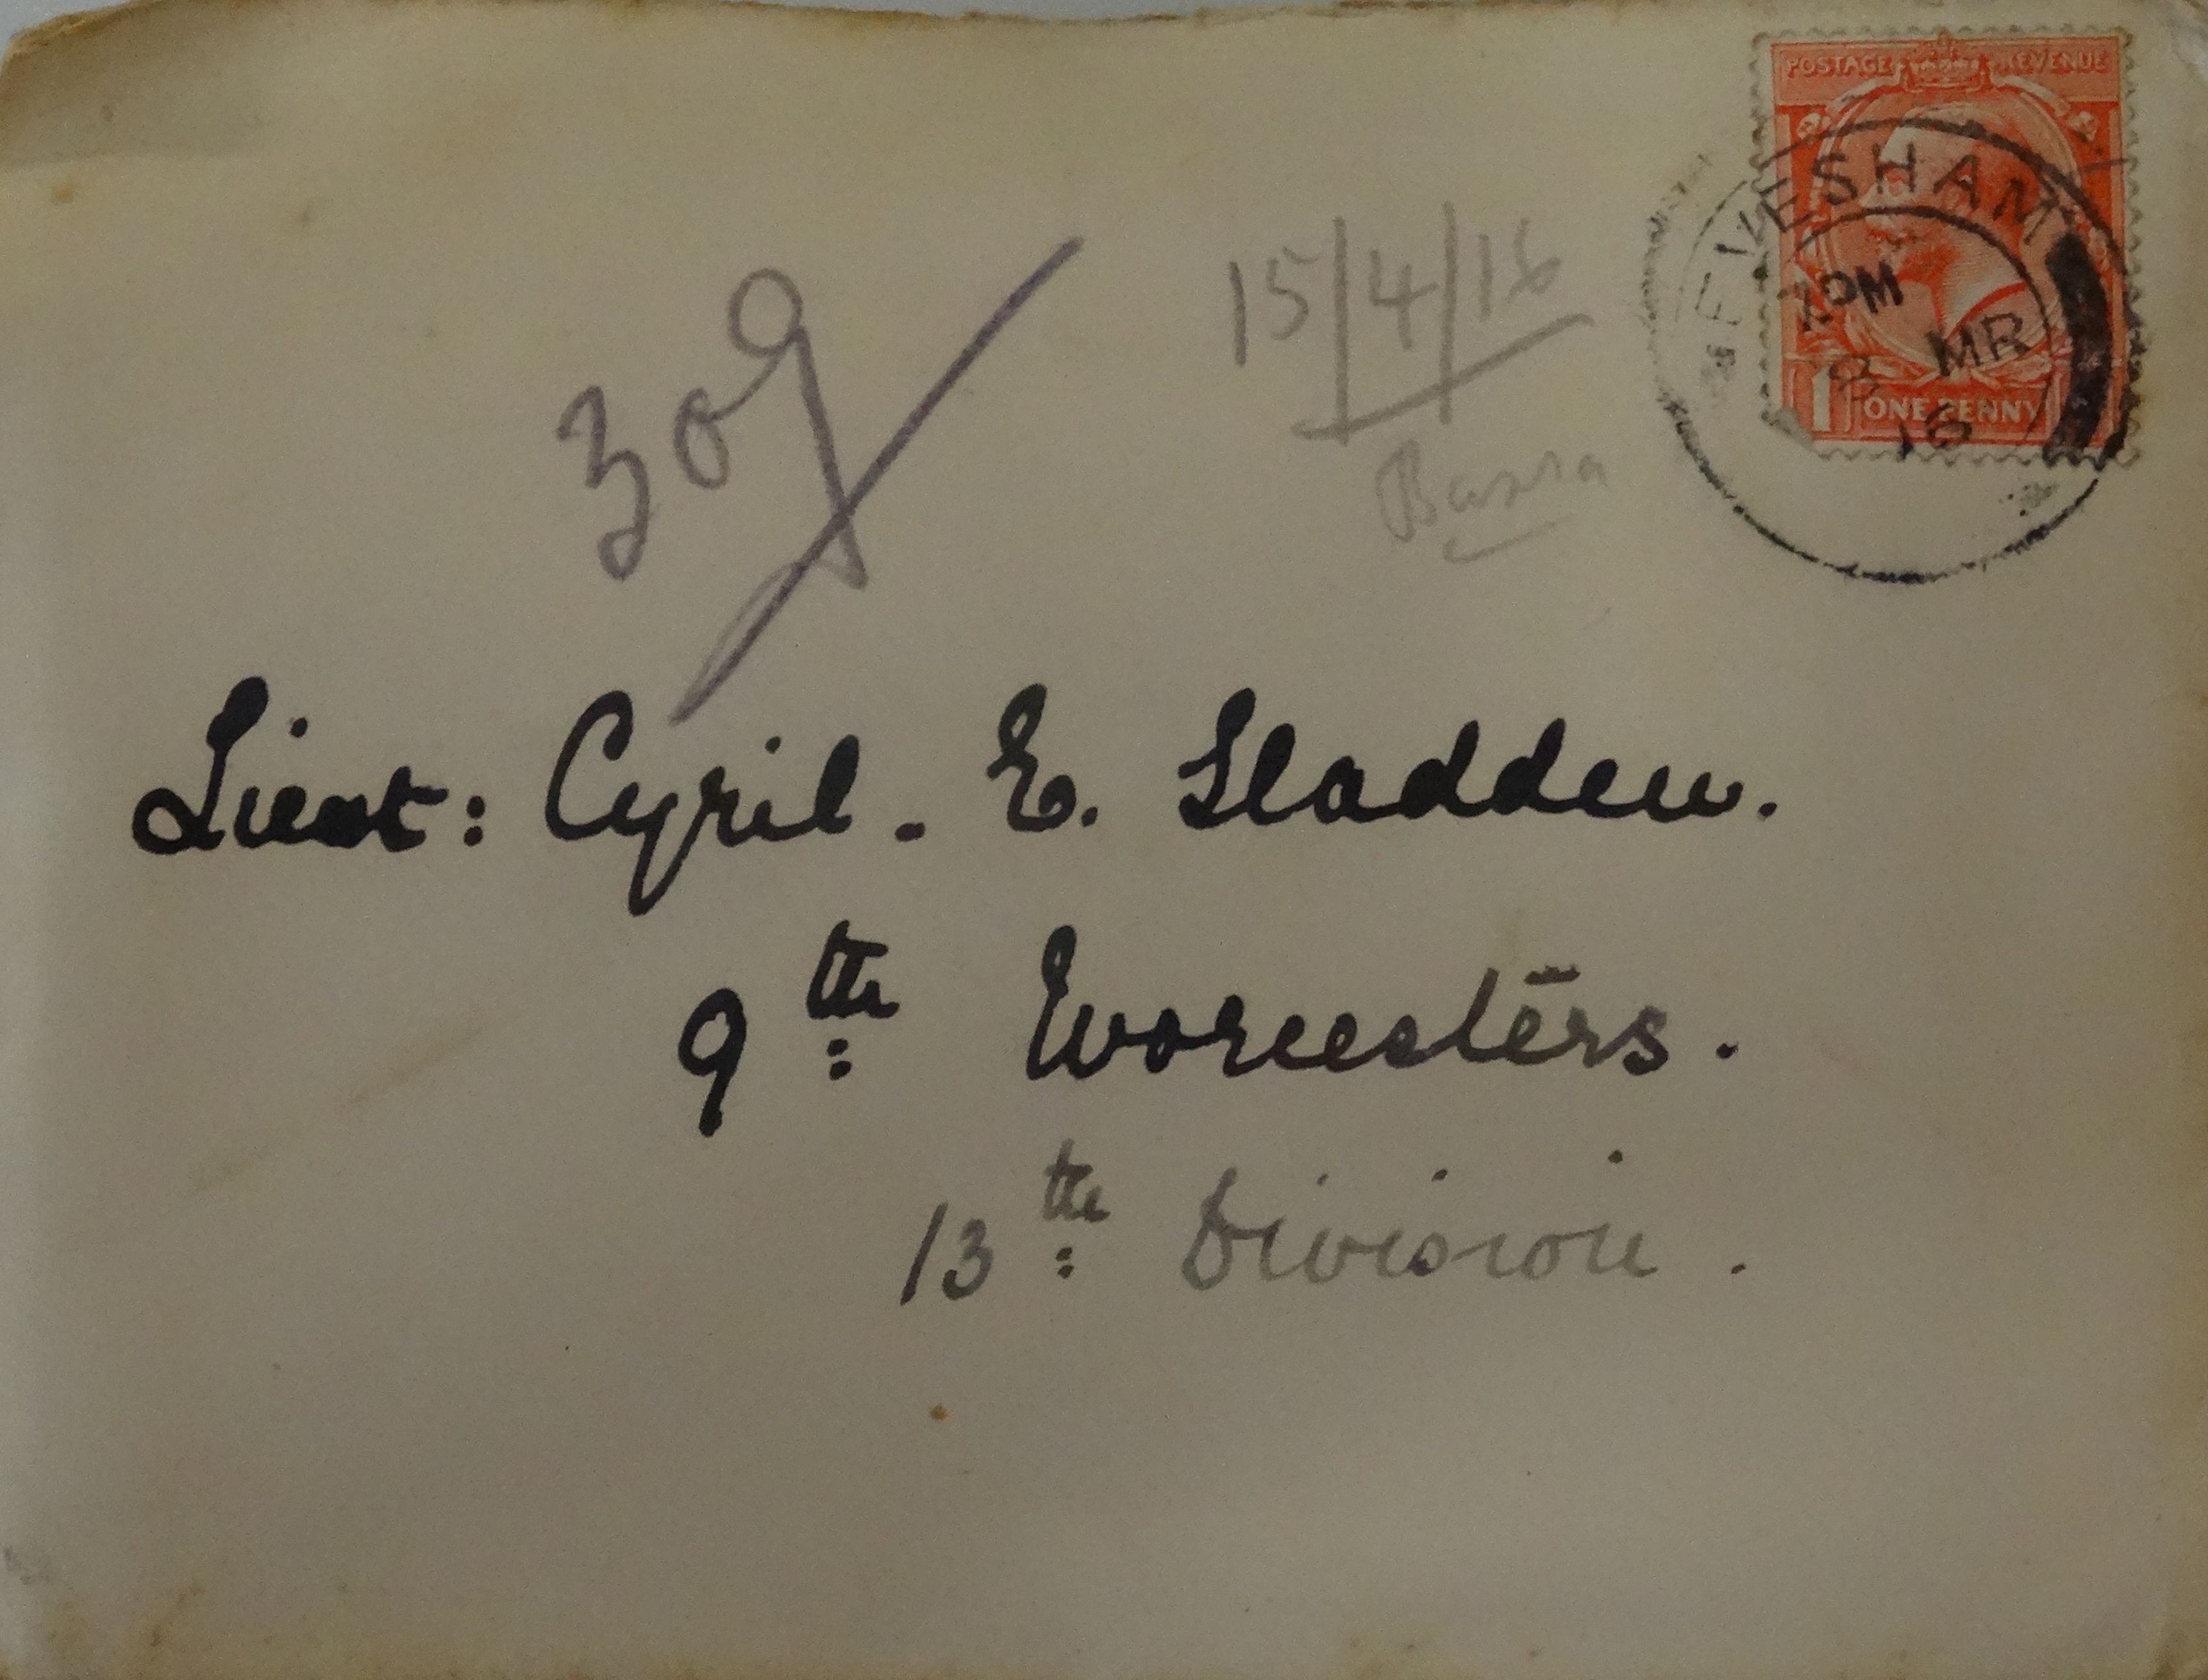 POSTAGE REVENUE
EVESHAM
7 PM
8 MR
16
1 ONE PENNY
309
15/4/16
Basra
Lieut: Cyril. E. Sladden.
9th: Worcesters.
13th: Division.